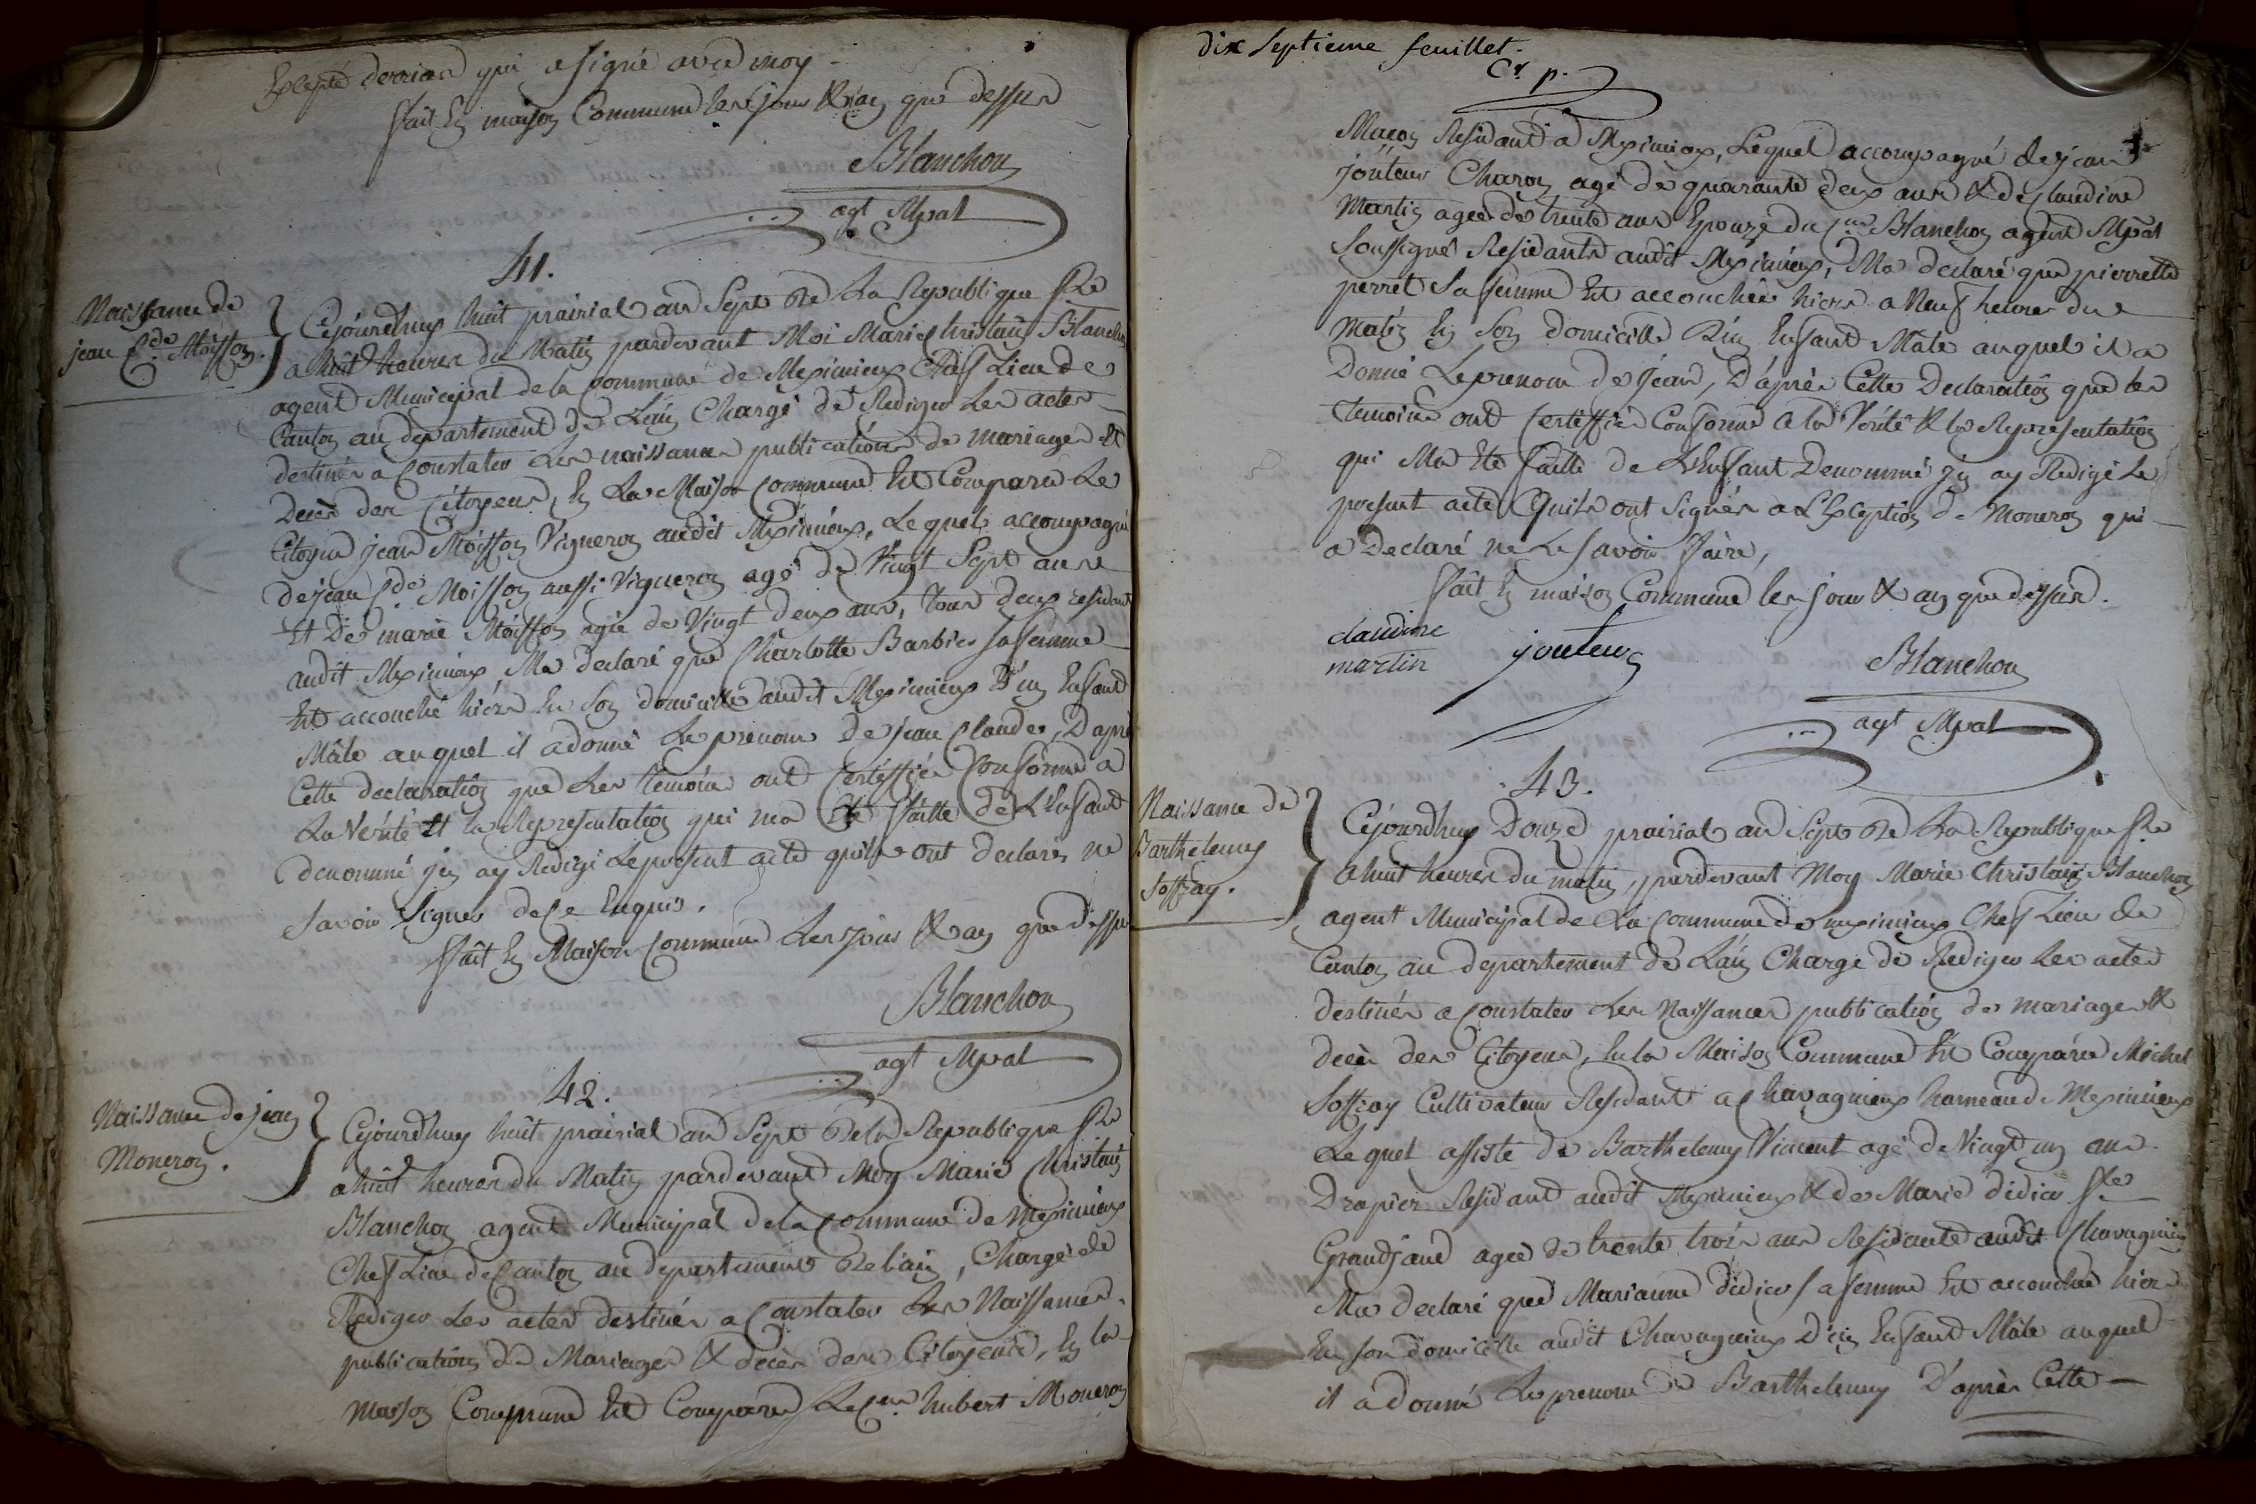 Excepté derrier qui a signé avec moy -
fait En maison Commune les jour & an que dessus
Blanchon
agt Mpal
41.
Naissance de
jean Cde Moisson.
Cejourdhuy huit prairial an Sept de La Republique fse
a huit heures du Matin pardevant Moi Marie Christain Blanchon
agent Municipal de la commune de Meximieux Chef Lieu de
Canton au departement de L'ain Chargé de Rediger Les actes
destinés a Constater Les naissances publications de mariages et
Decès des Citoyens, En La Maison Commune Est Comparu Le
Citoyen jean Moisson Vigneron audit Meximieux, Lequel accompagné
de jean Cde Moisson aussi Vigneron agé de Vingt Sept ans
Et De marie Moisson agée de Vingt deux ans, tous deux residants
audit Meximieux, Ma declaré que Charlotte Barbier sa femme
Est accouché hiers En son domicille audit Meximieux D'un Enfant
Mâle auquel il a donné Le prenom de jean Claude, D'après
Cette declaration que Les temoins ont Certiffiés Conforme a
La Verité Et la Representation qui ma Eté faitte de L'Enfant
denommé j'en ay Redigé Le present acte quils ont declarés ne
savoir Signer de ce Enquis.
fait En Maison Commune Les jour & an que dessus
Blanchon
agt Mpal
42.
Naissance de jean
Moneron.
Cejourdhuy huit prairial an Sept de la Republique fse
a huit heures du Matin pardevant Moy Marie Christain
Blanchon agent Municipal de la Commune de Meximieux
Chef Lieu de Canton au departement de L'ain, Chargé de
Rediger Les actes destinés a Constater Les Naissances
publications de Mariages & decès des Citoyens, En la
Maison Commune Est Comparu Le Cen hubert Moneron
dix septieme feuillet.
Cr p.
Maçon Residant a Meximieux, Lequel accompagné de jean
jouteur Charon agé de quarante deux ans & de Claudine
Martin agée de trente ans Epouze du Cen Blanchon agent Mpal
Soussigné Residants audit Meximieux, Ma declaré que pierrette
perret Sa femme Est accouchée hiers a Neuf heures du
Matin En Son domicille D'un Enfant Mâle auquel il a
Donné Le prenom de Jean, D'après Cette Declaration que les
temoins ont Certiffiés Conforme a la Vérité & la Representation
qui Ma Eté faitte de L'Enfant Denommé j'en ay Redigé Le
present acte Quils ont Signés a L'Exception de Moneron qui
a Declaré ne Le savoir faire,
fait En maison Commune les jour & an que dessus.
claudine
martin
jouteur
Blanchon
agt Mpal
43.
Naissance de
Barthelemy
Soffray.
Cejourdhuy Douze prairial an Sept de La Republique fse
a huit heures du matin, pardevant Moy Marie Christain Blanchon
agent Municipal de La Commune de meximieux Chef Lieu de
Canton au departement de L'ain Chargé de Rediger Les actes
destinés a Constater Les Naissances publication de mariages &
decès des Citoyens, En la Maison Commune Est Comparu Michel
Soffray Cultivateur Residant a Chavagnieux hameau de Meximieux
Lequel assisté de Barthelemy Vincent agé de Vingt un ans
Drapier Residant audit Meximieux & de Marie didier fe
Grandjean agée de trente trois ans Residante audit Chavagnieux
Ma declaré que Marianne didier sa femme Est accouchée hier
En son domicille audit Chavagnieux D'un Enfant Mâle auquel
il a donné Le prenom de Barthelemy D'après Cette